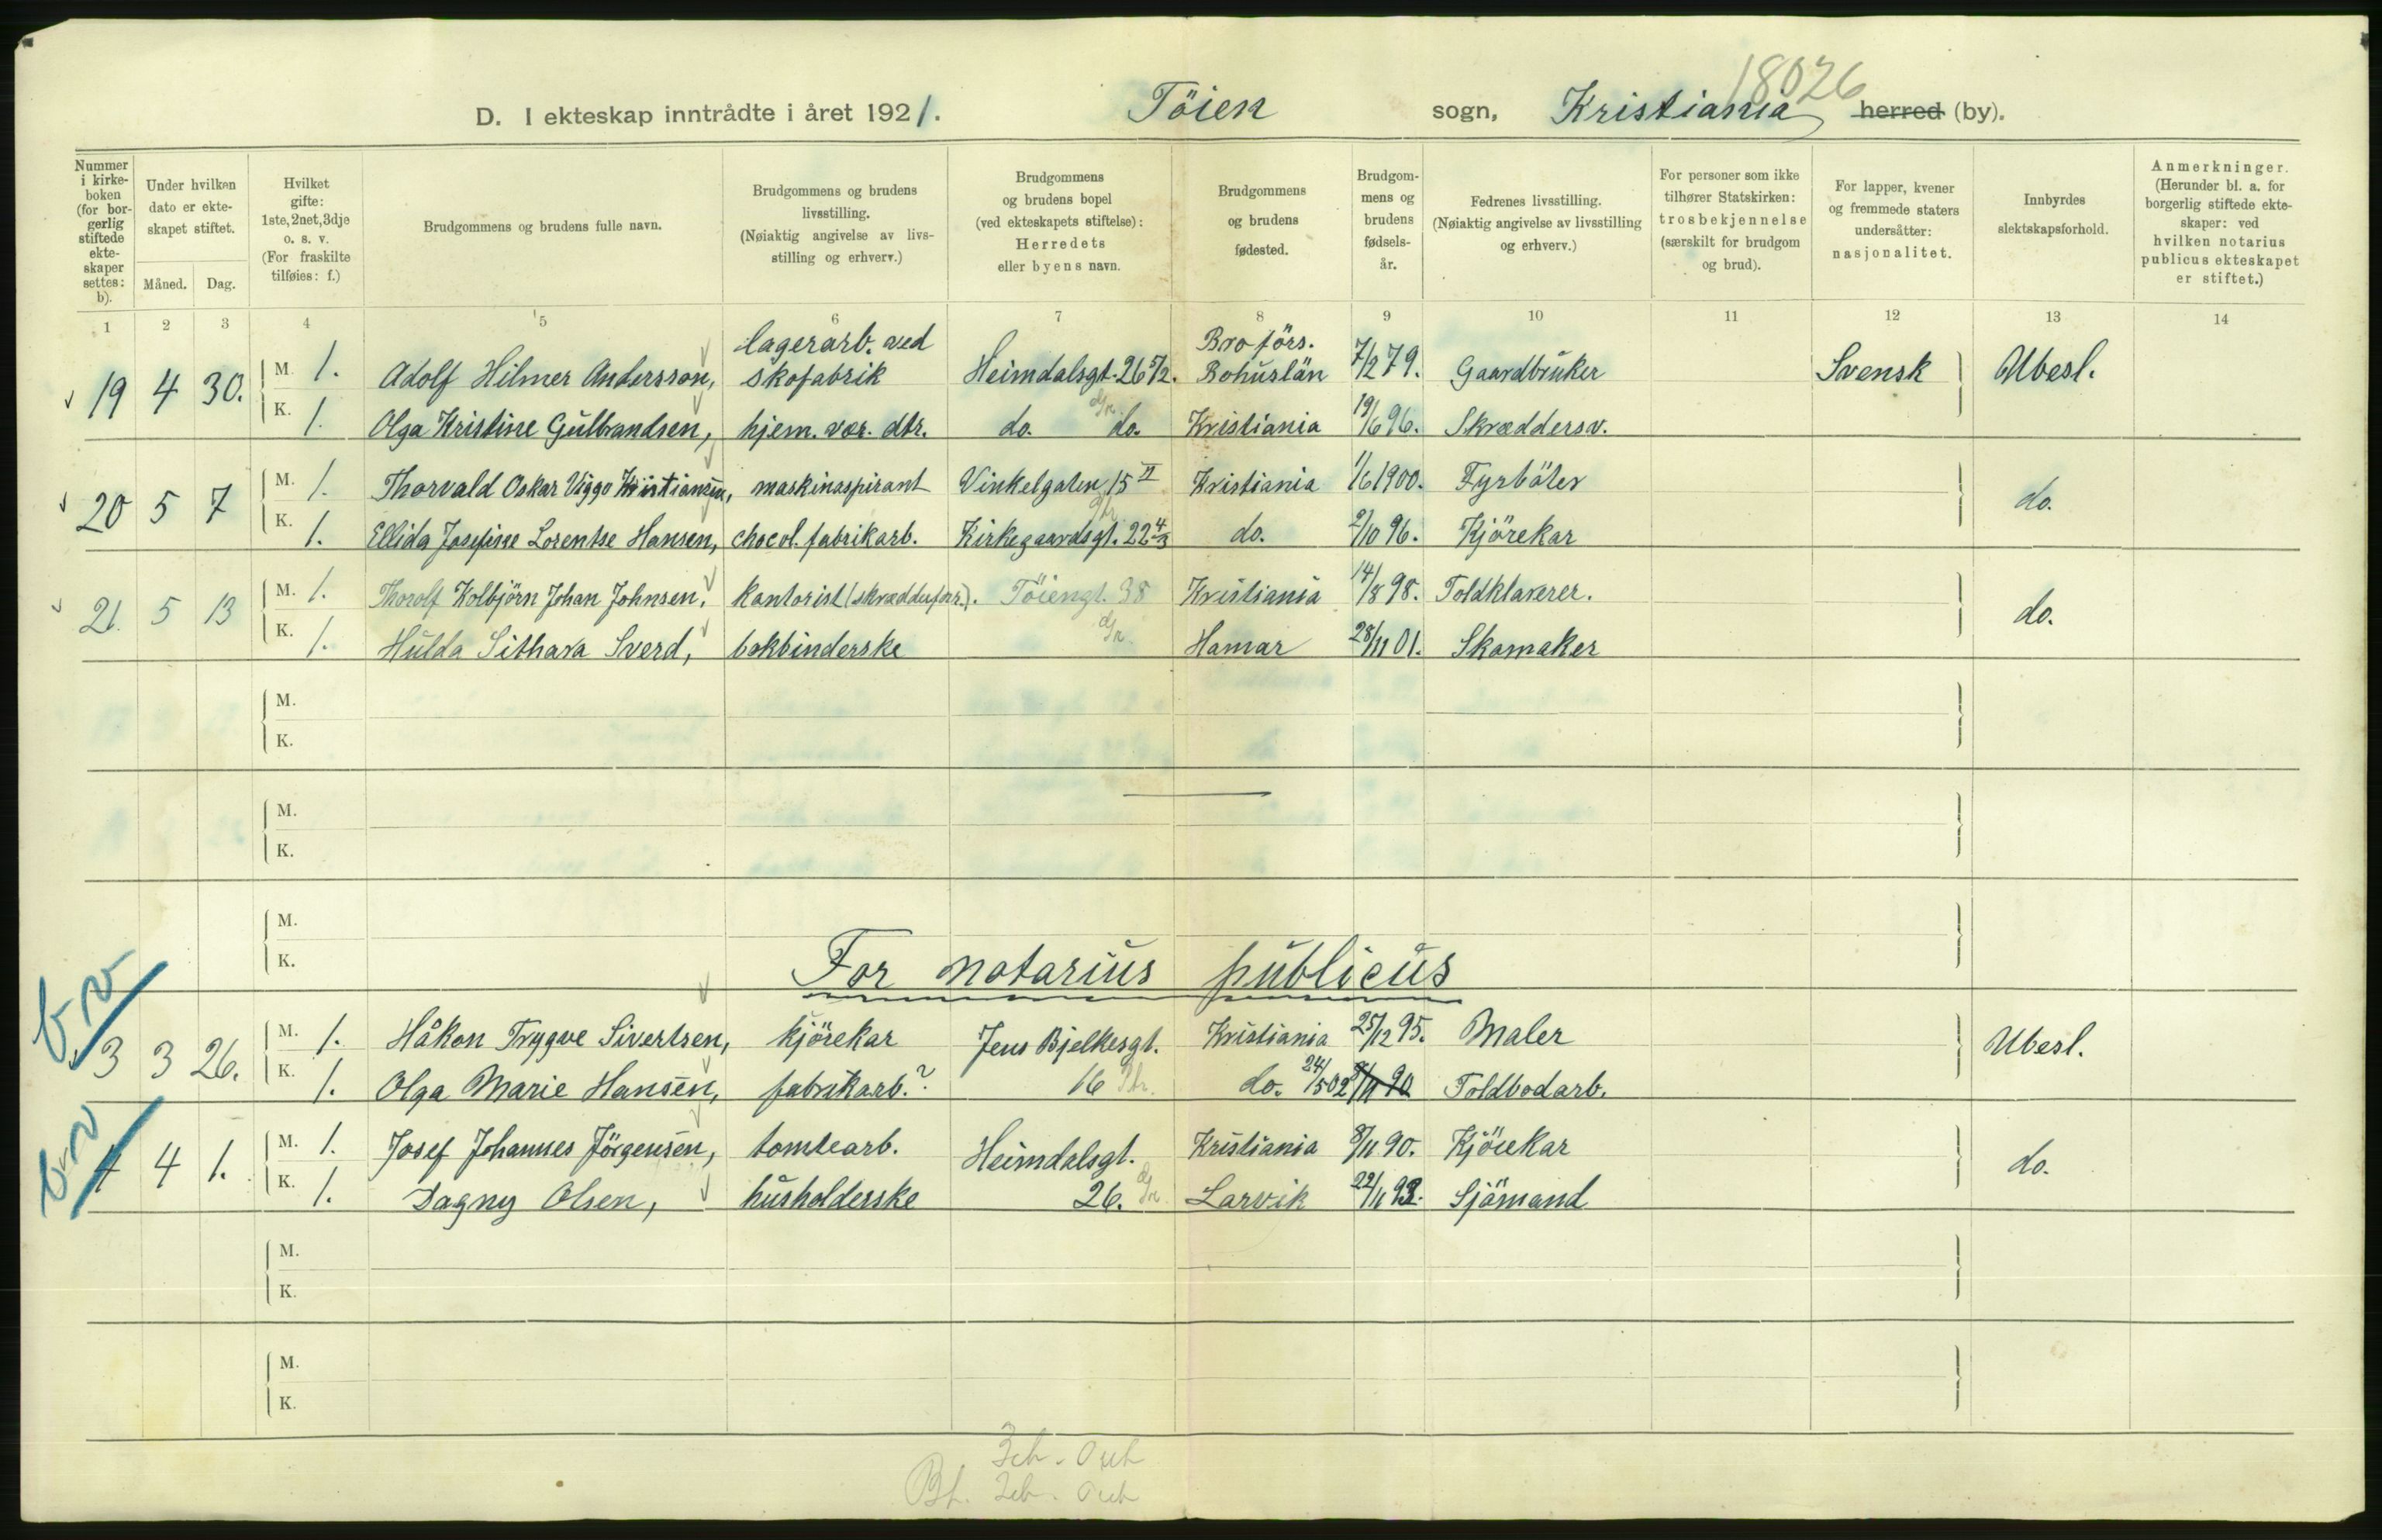 18026
D. I ekteskap inntrådte i året 1921. Töien sogn, Kristiania herred (by).
Nummer i kirke- boken (for bor- gerlig stiftede ekte- skaper settes: b).
Under hvilken dato er ekte- skapet stiftet.
Måned. Dag.
Hvilket gifte: 1ste, 2net, 3dje o. s. v. (For fraskilte tilføies: f.)
Brudgommens og brudens fulle navn.
Brudgommens og brudens livsstilling. (Nøiaktig angivelse av livs- stilling og erhverv.)
Brudgommens og brudens bopel (ved ekteskapets stiftelse): Herredets eller byens navn.
Brudgommens og brudens fødested.
Brudgom- mens og brudens fødsels- år.
Fedrenes livsstilling. (Nøiaktig angivelse av livsstilling og erhverv.)
For personer som ikke tilhører Statskirken: trosbekjennelse (særskilt for brudgom og brud).
For lapper, kvener og fremmede staters undersåtter: nasjonalitet.
Innbyrdes slektskapsforhold.
Anmerkninger. (Herunder bl. a. for borgerlig stiftede ekte- skaper: ved hvilken notarius publicus ekteskapet er stiftet.)
1 2 3 4 5 6 7 8 9 10 11 12 13 14
lagerarb. ved Bro förs.
19 4 30. M. 1. Adolf Hilmer Andersson, skofabrik Heimdalsgt. 26 5/2. Bohuslän 7/2 79. Gaardbruker Svensk Ubesl.
K. 1. Olga Kristine Gulbrandsen, hjem. vær. dtr. do. do. Kristiania 19/6 96. Skræddersv.
20 5 7 M. 1. Thorvald Oskar Viggo Kristiansen, maskinaspirant Vinkelgaten 15 II Kristiania 1/6 1900. Fyrböter do.
K. 1. Ellida Josefine Lorentse Hansen, chocol. fabrikarb. Kirkegaardsgt. 22 4/3 do. 2/10 96. Kjörekar
21. 5 13 M. 1. Thorolf Kolbjörn Johan Johnsen, kontorist (skrædderforr.). Töiengt. 38 Kristiania 14/8 98. Toldklarerer. do.
K. 1. Hulda Sithara Sverd, bokbinderske Hamar 28/11 01. Skomaker
M.
K.
M.
K.
M.
K.
For notarius publicus
3 3 26. M. 1. Håkon Trygve Sivertsen, kjörekar Jens Bjelkesgt. Kristiania 25/12 95. Maler Ubesl.
K. 1. Olga Marie Hansen, fabrikarb.? 16 do. 24/5 02 8/11 90 Toldbodarb.
4 4 1. M. 1. Josef Johannes Jörgensen, tomtearb. Heimdalsgt. Kristiania 8/11 90. Kjörekar do.
K. 1. Dagny Olsen, husholderske 26. Larvik 22/11 92. Sjömand
M.
K.
M.
K.